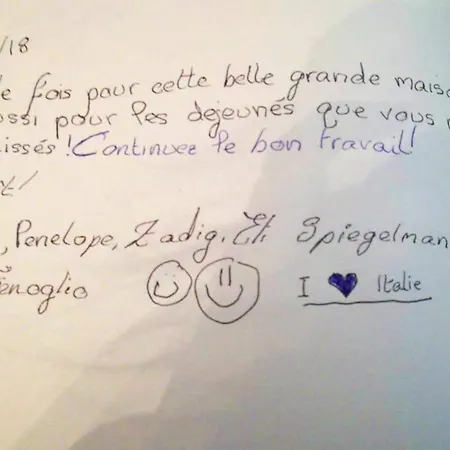 /18
fois pour cette belle grande
pour les dejeunés que vous
issés! Continuez le bon travail!
, Penelope, Zadig, Spiegelman
enoglio
I ♥ Italie